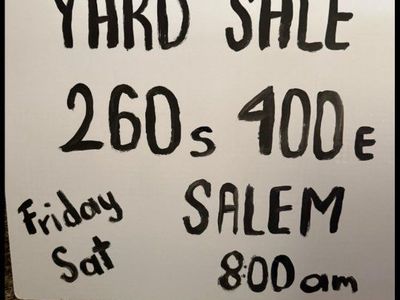 YARD SALE
260s 400E
Friday SALEM
Sat 8:00am